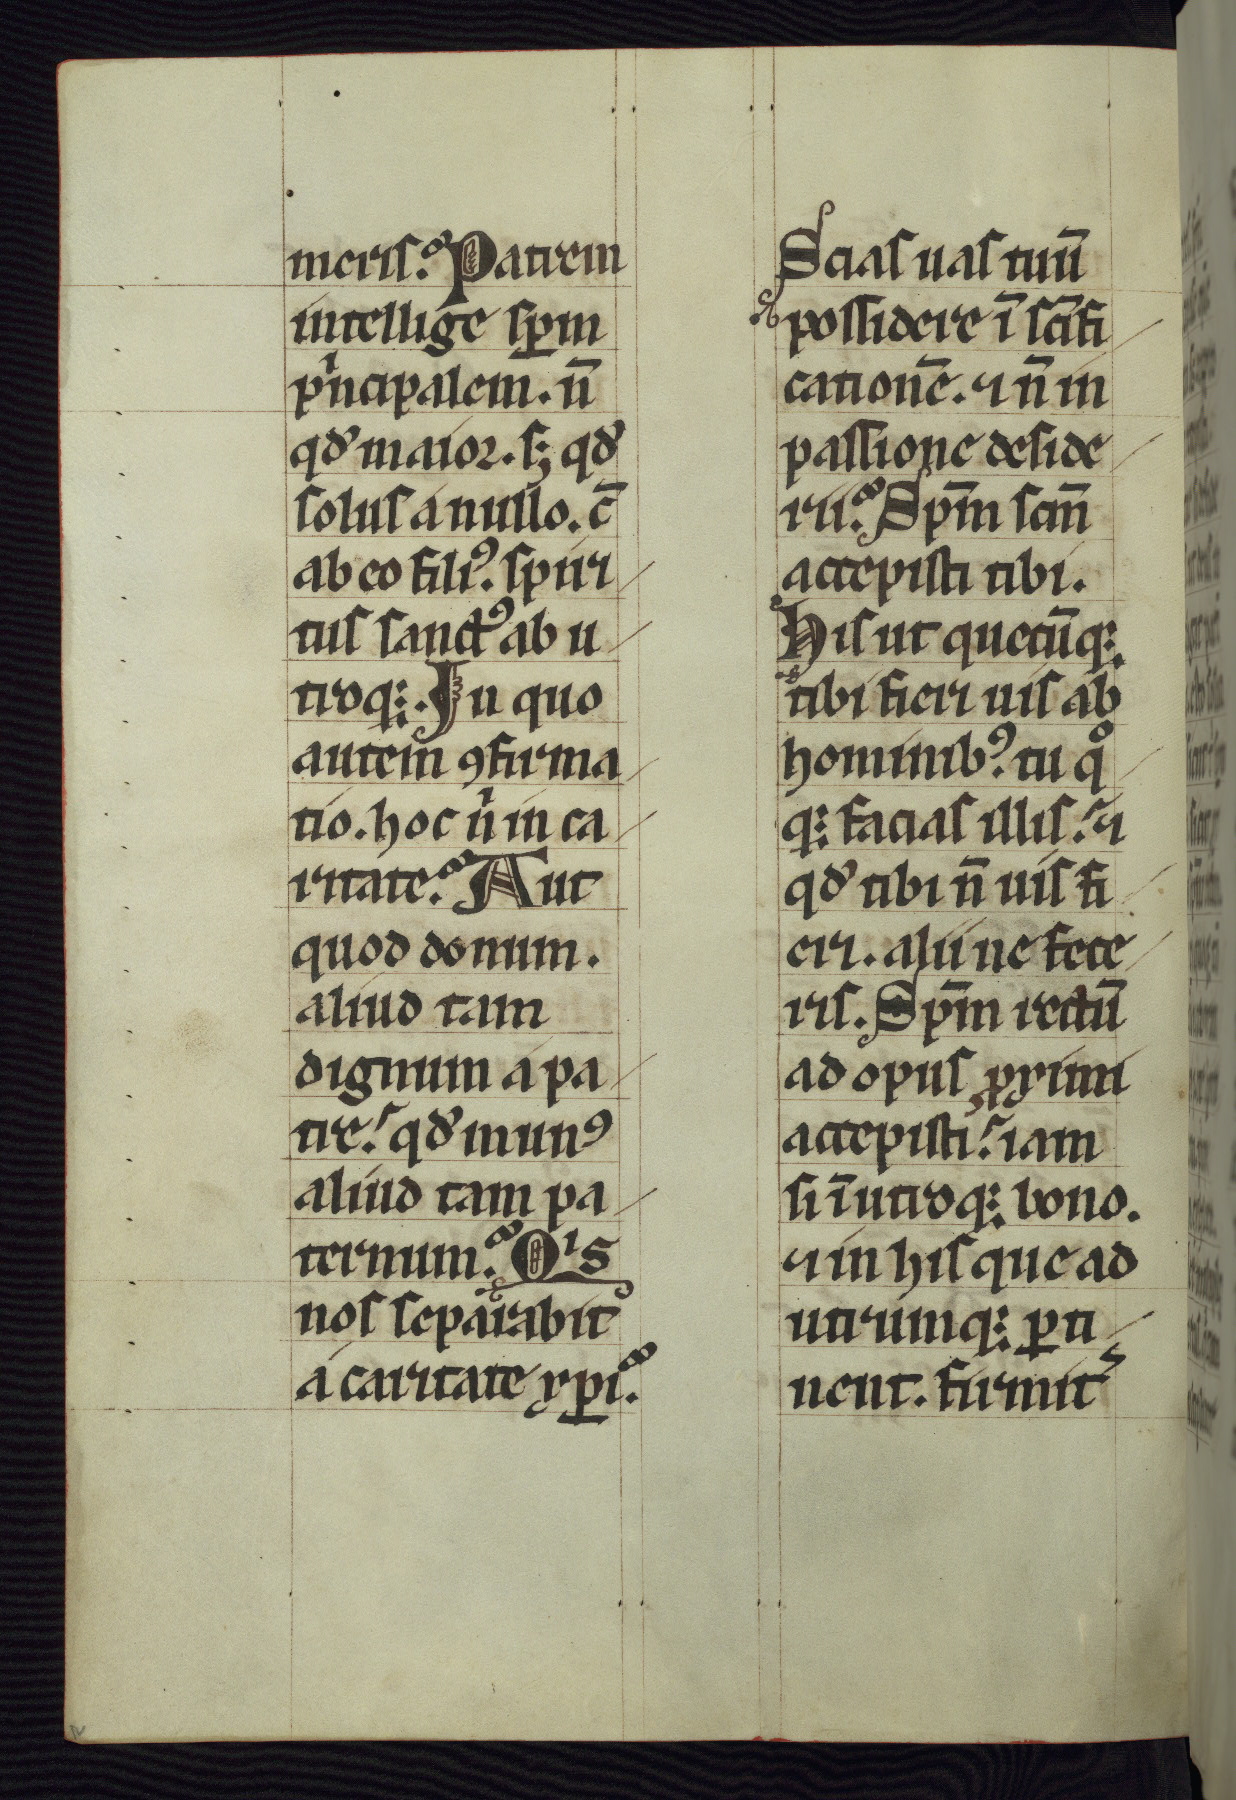 meris. Patrem
intellige sp̅m
pͥncipalem. n̅
qd̛ maior. s; qd̛
solus a nullo. c̅
ab eo filiꝰ. spiri
tus sanctꝰ ab u
troq;. In quo
autem ꝯfirma
tio. hoc nͥ in ca
ritate. Aut
quod donum.
aliud tam
dignum a pa
tre. qd̛ munꝰ
aliud tam pa
ternum. Qͥs
nos separabit
a caritate xp̅i.
Scias uas tuu̅
possidere i̅ sc̅ifi
catione̅. ⁊ n̅ in
passione deside
rii. Sp̅m scm̅
accepisti tibi.
His ut quecu̅q;
tibi fieri uis ab
hominibꝰ. tu qͦ
q; facias illis. ⁊
qd̛ tibi n̅ uis fi
eri. alii ne fece
ris. Sp̅m rectu̅
ad opus ꝓximi
accepisti. iam
si i̅ utroq; bono.
⁊ in his que ad
utrumq; ꝑti
nent. firmit᷑